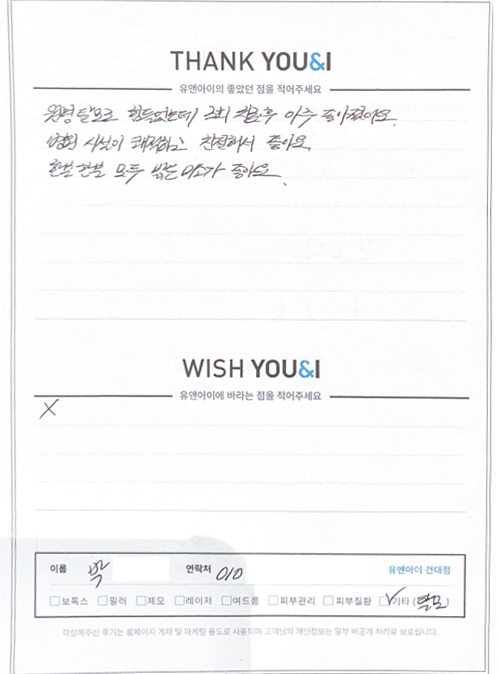 THANK YOU&I
유앤아이의 좋았던 점을 적어주세요
원형탈모로 힘들었는데 2회 치료후 아주 좋아졌어요.
병원 시설이 쾌적하고 친절해서 좋아요.
한분 한분 모두 밝은 미소가 좋아요.
WISH YOU&I
유앤아이에 바라는 점을 적어주세요
X
이름 박 연락처 010 유앤아이 건대점
보톡스 필러 제모 레이저 여드름 피부관리 피부질환 ✓기타 (탈모)
작성해주신 후기는 홈페이지 게재 및 마케팅 용도로 사용되며 고객님의 개인정보는 일부 비공개 처리로 보호됩니다.